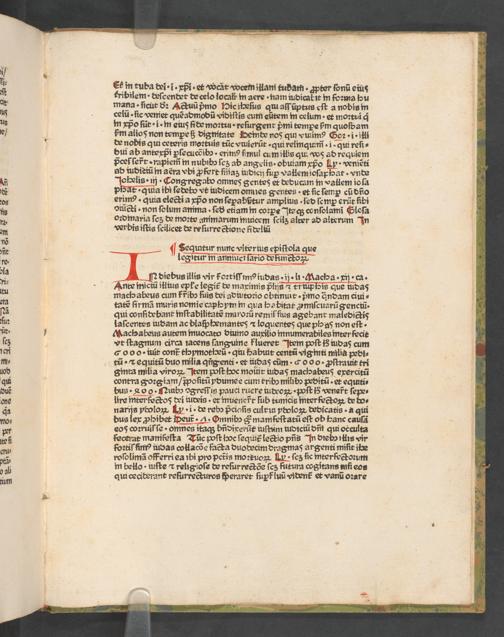 Et in tuba dei · i · xpi · et vocat vocem illam tubam · propter sonū eius
ribilem · descendet de celo localit in aere · nam iudicabit in forma hu
mana · sicut dr̄ Actuū pmo Hic ihesus qui assūptus est a nobis in
celū · sic veniet quēadmodū vidistis eum eūtem in celum · et mortui q̄
in xpo sūt · i · in eius fide mortui · resurgent pmi
fm alios non tempe sꝫ dignitate Deinde nos qui vivimꝰ · i · illi
de nobis qui ceteris mortuis tūc vivi erūt · qui relinquim̄ · i · qui resi-
dui ab antexpi psecucōibꝰ · erimꝰ simul cum illis qui ad requiem
rapiem̄ in nubibꝰ scꝫ ab angelis · obviam xpo Ly · veniēti
ad iudiciū in aera vbi iudicii sup vallem iosaphat · vnde
Iohelis · iij · Congregabo omnes gentes et deducam in vallem iosa
phat · quia ibi sedebo vt iudicem omnes gentes · et sic semp cū dno
erimꝰ · quia electi a xpo non separabūtur amplius · sed semp erūt sibi
cōiūcti · non solum anima · sed etiam in corpe Itaqꝫ consolamī Glosa
ordinaria scꝫ de morte animarum vnicem scilꝫ alter ad alterum In
verbis istis scilicet de resurrectione fidelium
¶ Sequitur nunc vlterius epistola que
legitur in anniversario defunctorꝫ
IN diebus illis vir fortissimꝰ iudas · ij · li · Macha · xij · ca ·
Ante iniciū illius eple legit̄ de maximis plijs et triūphis que iudas
machabeus cum fribꝰ suis dei adiutorio obtinuit · pmo qdam civi-
tatē firmā muris nomie caphrin in qua habitāt mixtura gentiū ·
qui confidebant instabilitate maroꝝ remissius agebant maledictis
lacescentes iudam ac blasphemantes et loquentes que phas non est ·
Machabeus autem invocato divino auxilio innumerabiles interfecit
vt stagnum circa iacens sanguine flueret Item post iudas cum
6000 · iuit cont̄ thymotheū · qui habuit centū viginti milia pedi-
tū · et equitū duo milia qngenti · et iudas cum · 6000 · pstravit tri
ginta milia viroꝝ Item post hoc movit iudas machabeus exercitū
contra gorgiam ppositū ydumee cum tribꝰ milibꝰ peditū · et equiti-
bus · 400 · pauci ruere iudeoꝝ · post venert̄ sepe-
lire interfectos dei iudeis · et invenert̄ sub tunicis interfectoꝝ de do-
narijs ydoloꝝ Ly · i · de rebꝰ pciosis cultui ydoloꝝ dedicatis · a qui
bus lex phibet Deut̄ · 7 · Omnibꝰ manifestatū est ob hanc causā
eos corruisse · omnes itaqꝫ bndixerūt iustum iudiciū dni qui occulta
fecerat manifesta Tūc post hoc sequit̄ lectio pns In diebꝰ illis vir
fortissimꝰ iudas collacōe facta duodecim dragmas argenti misit ihe
rosolimā offerri ea ibi pro pctis mortuoꝝ Ly · scꝫ sic interfectorum
in bello · iuste et religiose de resurrectōe scꝫ futura cogitans nisi eos
qui ceciderant resurrecturos speraret supfluū videret̄ et vanū orare